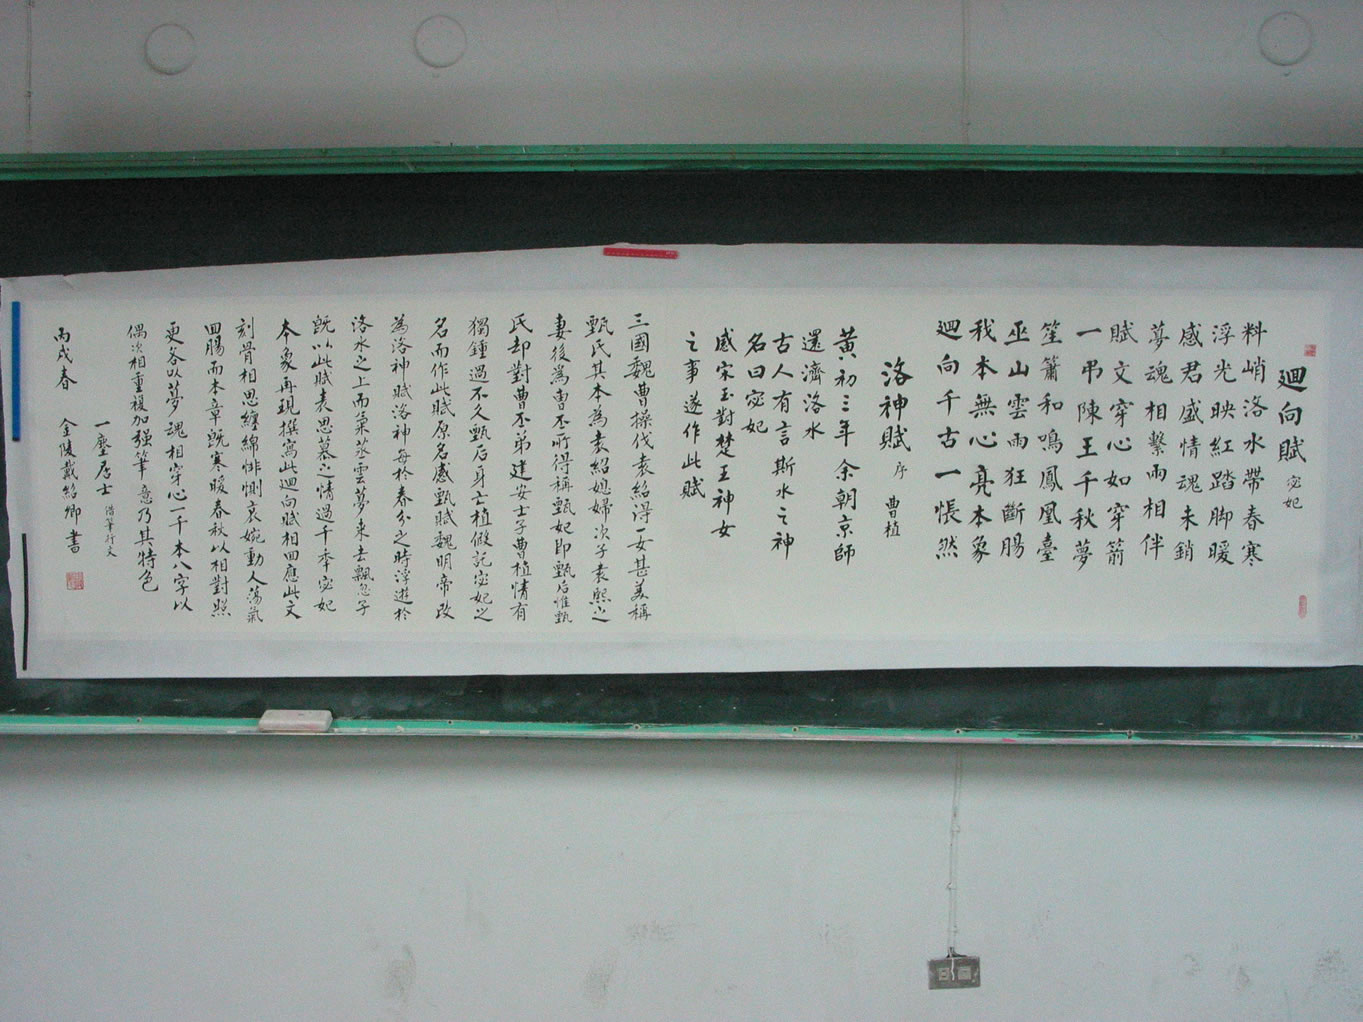 迴向賦 宓妃
料峭洛水帶春寒
浮光映紅踏脚暖
感君盛情魂未銷
夢魂相繫兩相伴
賦文穿心如穿箭
一弔陳王千秋夢
笙簫和鳴鳳凰臺
巫山雲雨狂斷腸
我本無心亮本象
迴向千古一悵然
洛神賦 序 曹植
黃初三年余朝京師
還濟洛水
古人有言斯水之神
名曰宓妃
感宋玉對楚王神女
之事遂作此賦
三國魏曹操伐袁紹得一女甚美稱
甄氏其本為袁紹媳婦次子袁熙之
妻後為曹丕所得稱甄妃即甄后惟甄
氏却對曹丕弟建安士子曹植情有
獨鍾過不久甄后身亡植假記宓妃之
名而作此賦原名感甄賦魏明帝改
為洛神賦洛神每於春分之時浮遊於
洛水之上而氣蒸雲夢來去飄忽子
既以此賦表思慕之情過千年宓妃
本象再現撰寫此迴向賦相回應此文
刻骨相思纏綿悱惻哀婉動人蕩氣
回腸而本章既寒暖春秋以相對照
更各以夢魂相穿心一千本八字以
偶次相重複加强筆意乃其特色
一塵居士 借筆行文
丙戌春 金陵戴紹卿書